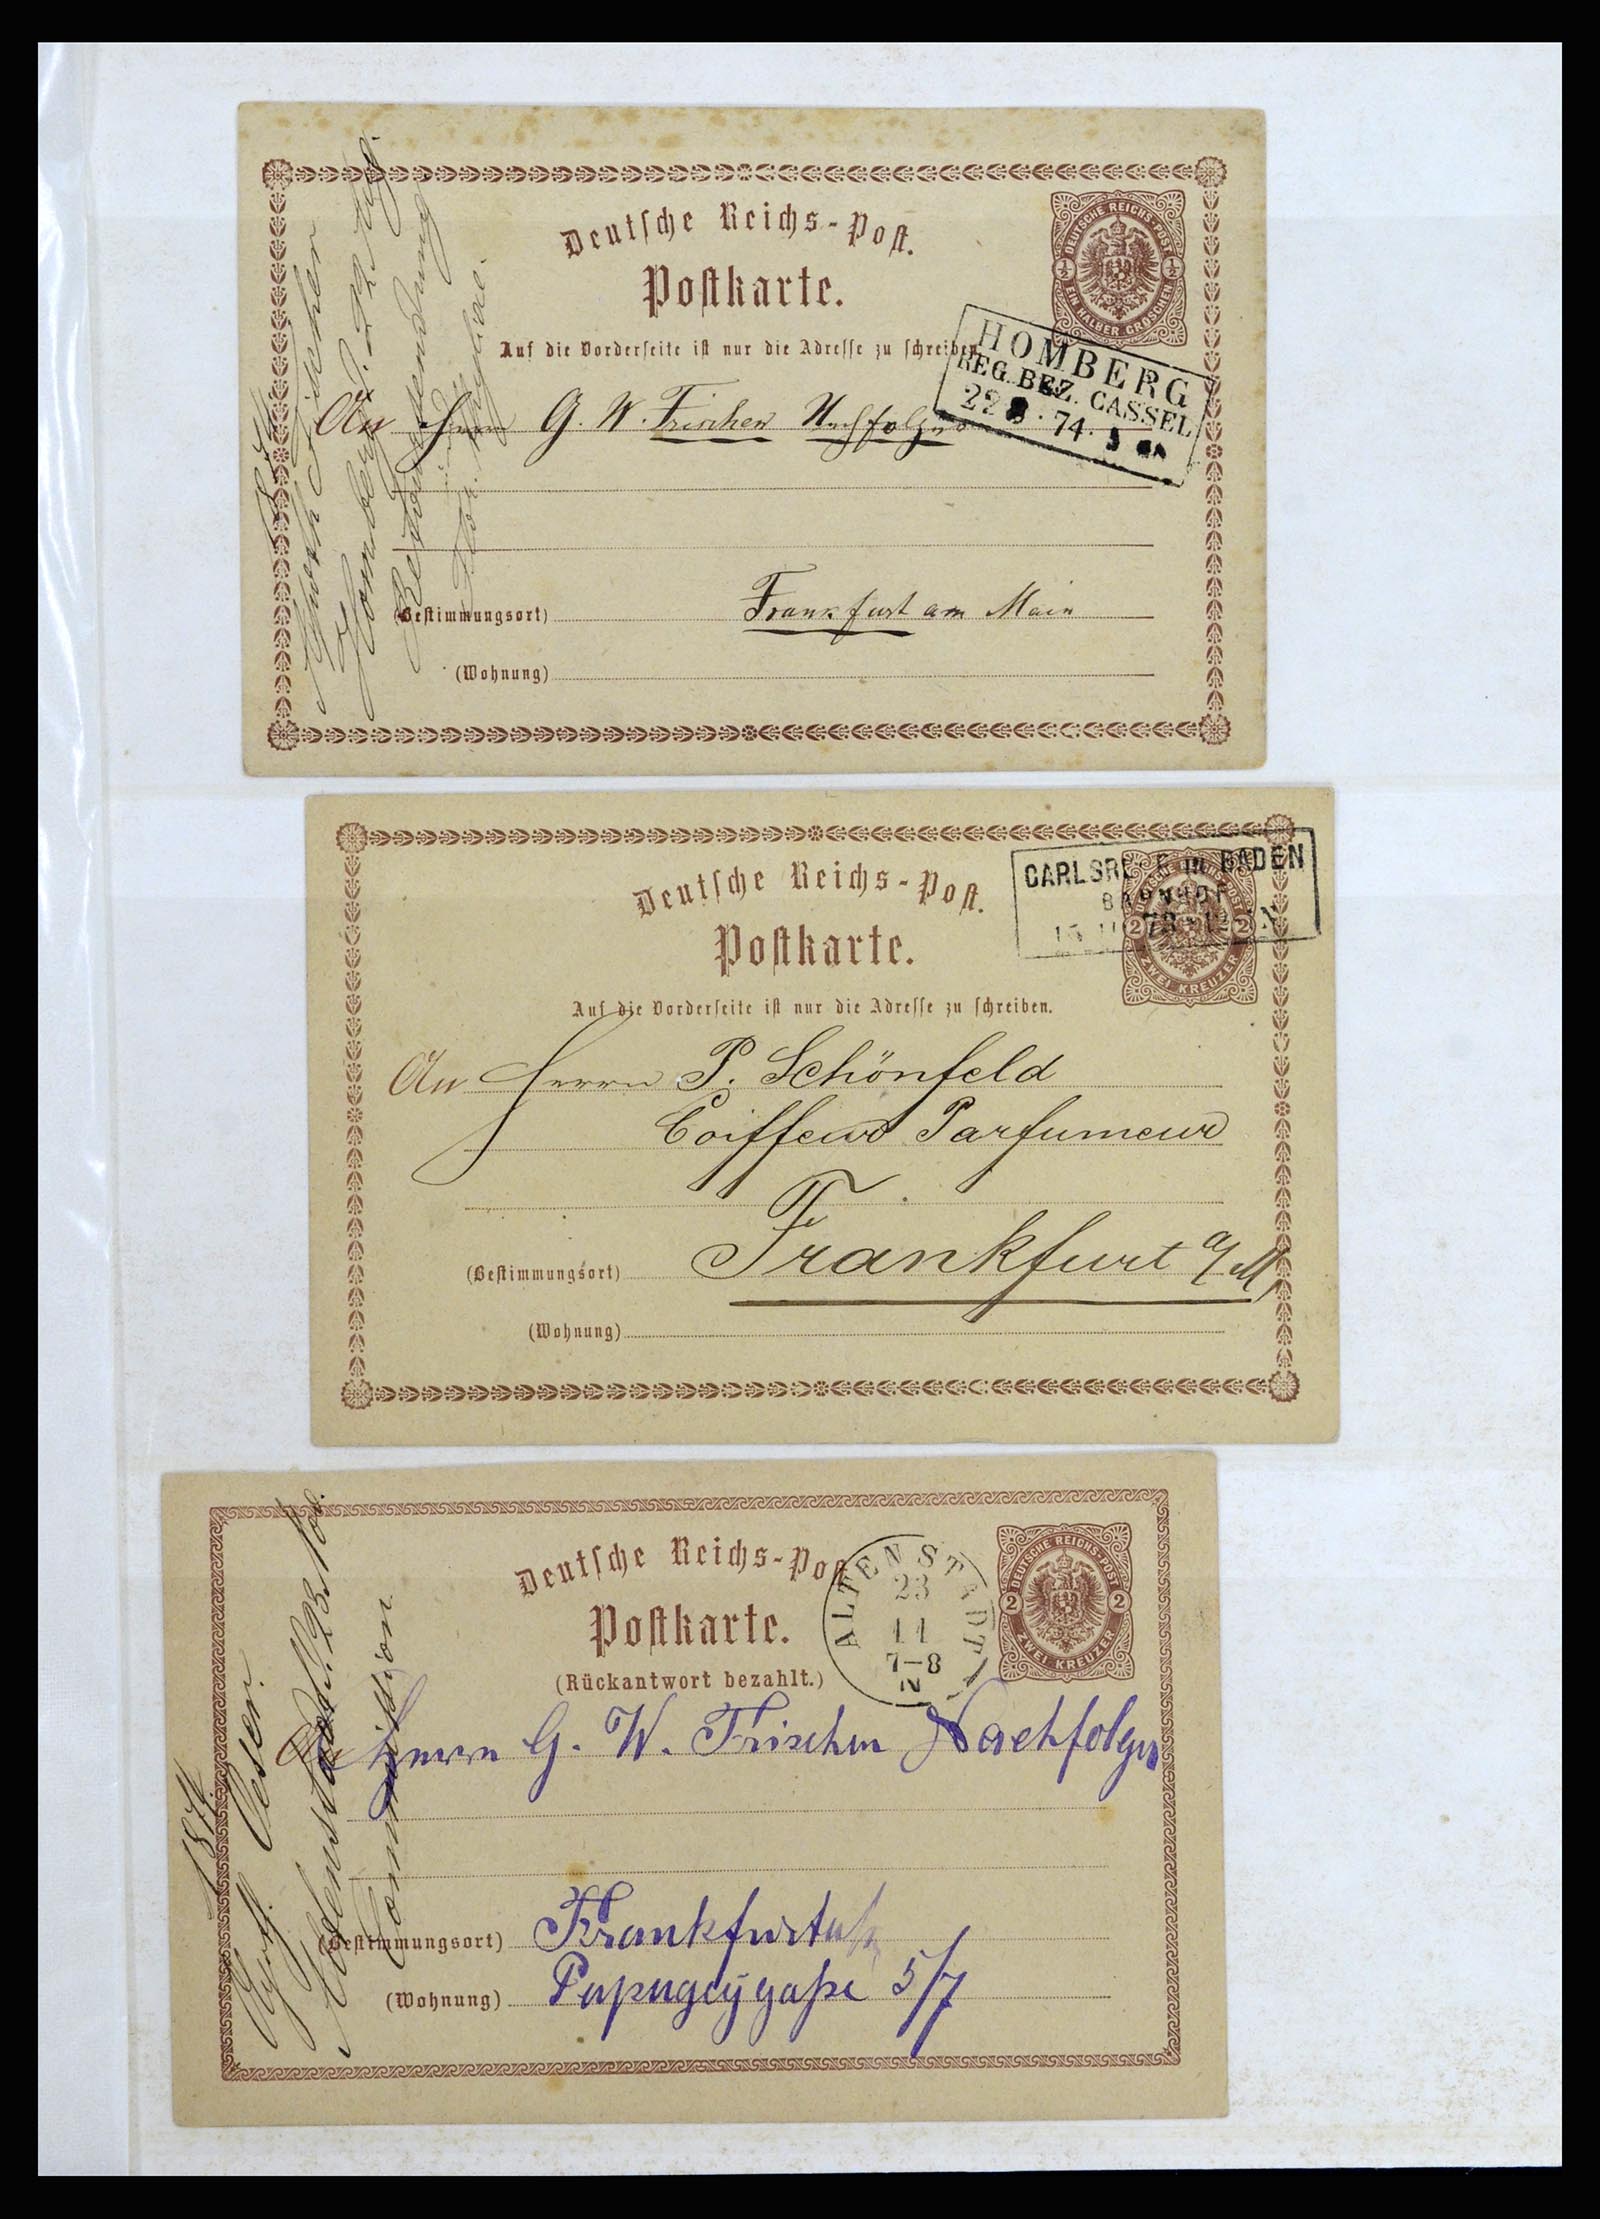 Deutsche Reichs-Post.
Postkarte.
DEUTSCHE REICHS-POST
½ ½
EIN HALBER GROSCHEN
Auf die Vorderseite ist nur die Adresse zu schreiben.
HOMBERG
REG. BEZ. CASSEL
22 8 . 74.
An Herrn G. W. Frischen Nachfolger
(Bestimmungsort) Frankfurt am Main
(Wohnung)
Homberg
Deutsche Reichs-Post.
Postkarte.
CARLSRUHE IN BADEN
BAHNHOF
2 2
ZWEI KREUZER
Auf die Vorderseite ist nur die Adresse zu schreiben.
An Herrn P. Schönfeld
Coiffeur Parfumeur
Frankfurt a/M
(Bestimmungsort)
(Wohnung)
Deutsche Reichs-Post
Postkarte.
(Rückantwort bezahlt.)
ALTENSTADT
23
11
7-8
N
DEUTSCHE REICHS-POST
2 2
ZWEI KREUZER
An Herrn G. W. Frischen Nachfolger
(Bestimmungsort) Frankfurt a/M
(Wohnung) Papugeygaße 5/7
1874
Altenstadt 23.
Commission